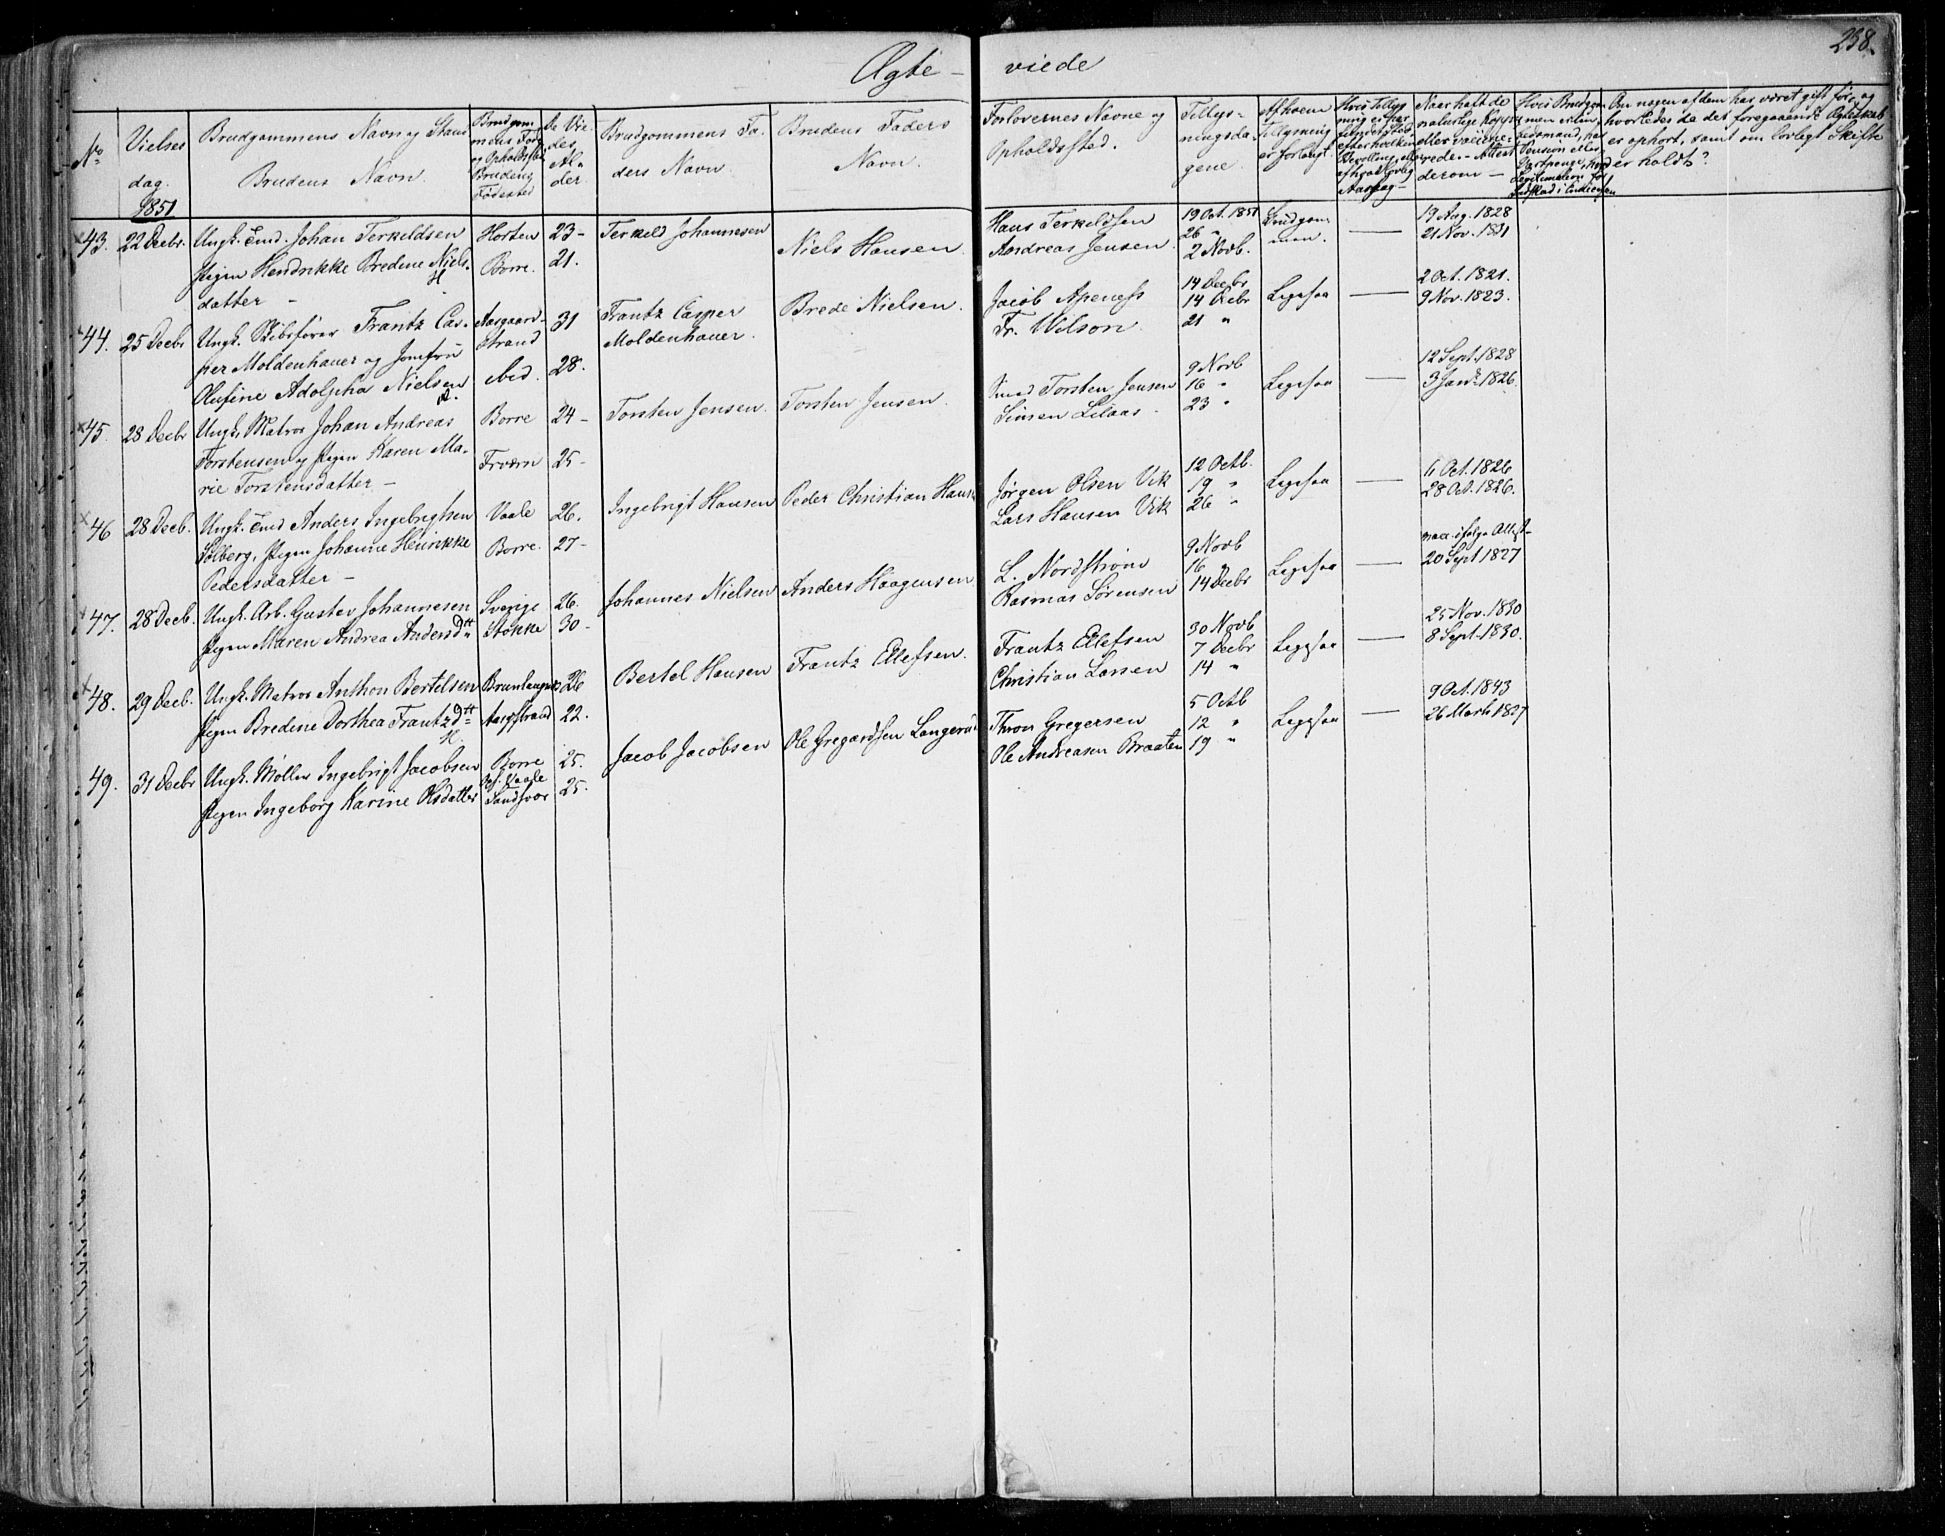 238.
Ægte-viede
No
Vielses dag.
1851
Brudgommens Navn og Stand
Brudens Navn.
Brudgommens Føde og Opholdssted
Brudens Fødested
De Viedes Alder.
Brudgommens Faders Navn.
Brudens Faders Navn.
Forlovernes Navne og Opholdssted.
Tillysningsdagene.
Af hvem Tillysning er forlangt.
Naar haft de naturlige Kopper eller vaccinerede. - Attest derom -
Om nogen af dem har været gift før, og hvorledes da det foregaaende Ægteskab er ophørt, samt om lovligt Skifte er holdt?
43. 22 Decbr. Ungk. Johan Terkeldsen Horten 23- Terkeld Johannesen Niels Hansen. Hans Terkeldsen 19 Oct. 1851 Brudgom- 19 Aug. 1828
Pigen Hendrikke Bredene Niels- Borre. 21. Andreas Jensen. 26 " men. — 21 Nov. 1831
datter - 2 Novb.
44. 25 Decbr Ungk. Skibsfører Frantz Cas- Aasgaard- 31 Frantz Casper Brede Nielsen. Jacob Apeness 14 Decbr Ligesaa — 2 Oct. 1821.
per Moldenhauer og Jomfru strand Moldenhauer. Fr. Wilson. 14 Decbr 9 Nov. 1823.
Olufine Adolpha Nielsen ibid. 28. 21 "
45. 28 Decbr Ungk. Matros Johan Andreas Borre 24- Torsten Jensen. Torsten Jensen. Torsten Jensen 9 Novb Ligesaa — 12 Sept. 1828
Torstensen og Pigen Karen Ma- 25- Simen Lilaas. 16 " 3 Janr. 1826.
rie Torstensdatter - 23 "
46 28 Decb. Ungk. Anders Ingebrigtsen Vaale 26. Ingebrigt Hansen Peder Christian Hans Jørgen Olsen Vik 12 Octb. Ligesaa — 6 Oct. 1826
Solberg, Pigen Johanne Heinrikke Borre. 27- Lars Hansen Vik 19 " 28 Oct. 1826.
Pedersdatter - 26 "
47. 28 Decb. Ungk. Arb. Gustav Johannesen Sverige 26. Johannes Nielsen Anders Haagensen L. Nordstrøm 9 Novb Ligesaa — vacc. ifølge Attest-
Pigen Maren Andrea Andersdtt Stokke 30- Rasmus Sørensen 16 " 20 Sept 1827
14 Decbr
48. 29 Decb. Ungk. Matros Anthon Bertelsen Brunlaugnes 26 Bertel Hansen Frantz Ellefsen. Frantz Ellefsen 30 Novb Ligesaa — 25 Nov. 1830
Pigen Bredine Dorthea Frantzdtt Aasgstrand 22. Christian Larsen 7 Decbr 8 Sept. 1830.
14 "
49. 31 Decbr Ungk. Møller Ingebrigt Jacobsen Borre 25. Jacob Jacobsen Ole Gregardsen Langerud Thron Gregersen 5 Octb Ligesaa — 9 Oct. 1843
Pigen Ingeborg Karine Olsdatter Sandsvær 25. Ole Andreasen Braaten 12 " 26 Marts 1827
19 "